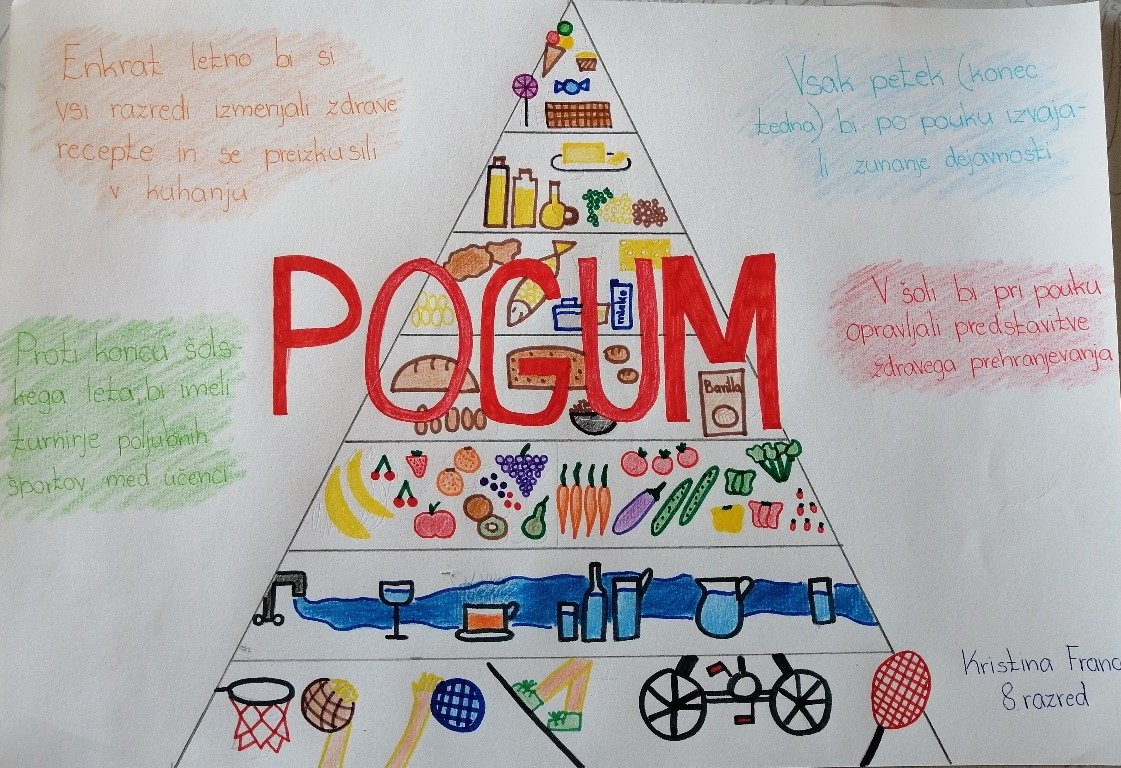 Enkrat letno bi si
vsi razredi izmenjali zdrave
recepte in se preizkusili
v kuhanju
Vsak petek (konec
tedna) bi po pouku izvaja-
li zunanje dejavnosti
POGUM
mleko
Barilla
Proti koncu šols-
kega leta, bi imeli
turnirje poljubnih
športov med učenci
V šoli bi pri pouku
opravljali predstavitve
zdravega prehranjevanja
Kristina Franc
8. razred